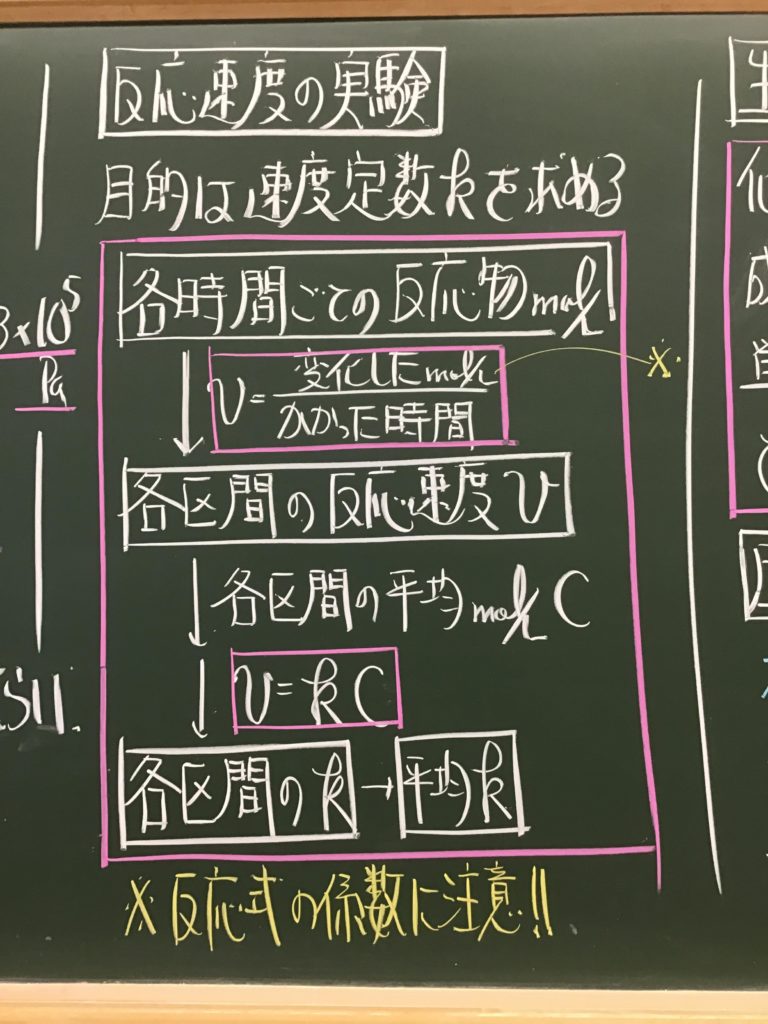 反応速度の実験
目的は速度定数kを求める
各時間ごての反応物mol/L
v=変化したmol/L
かかった時間
※
各区間の反応速度v
↓各区間の平均mol/L C
↓v=kC
各区間のk→平均k
※反応式の係数に注意!!
×10⁵
Pa